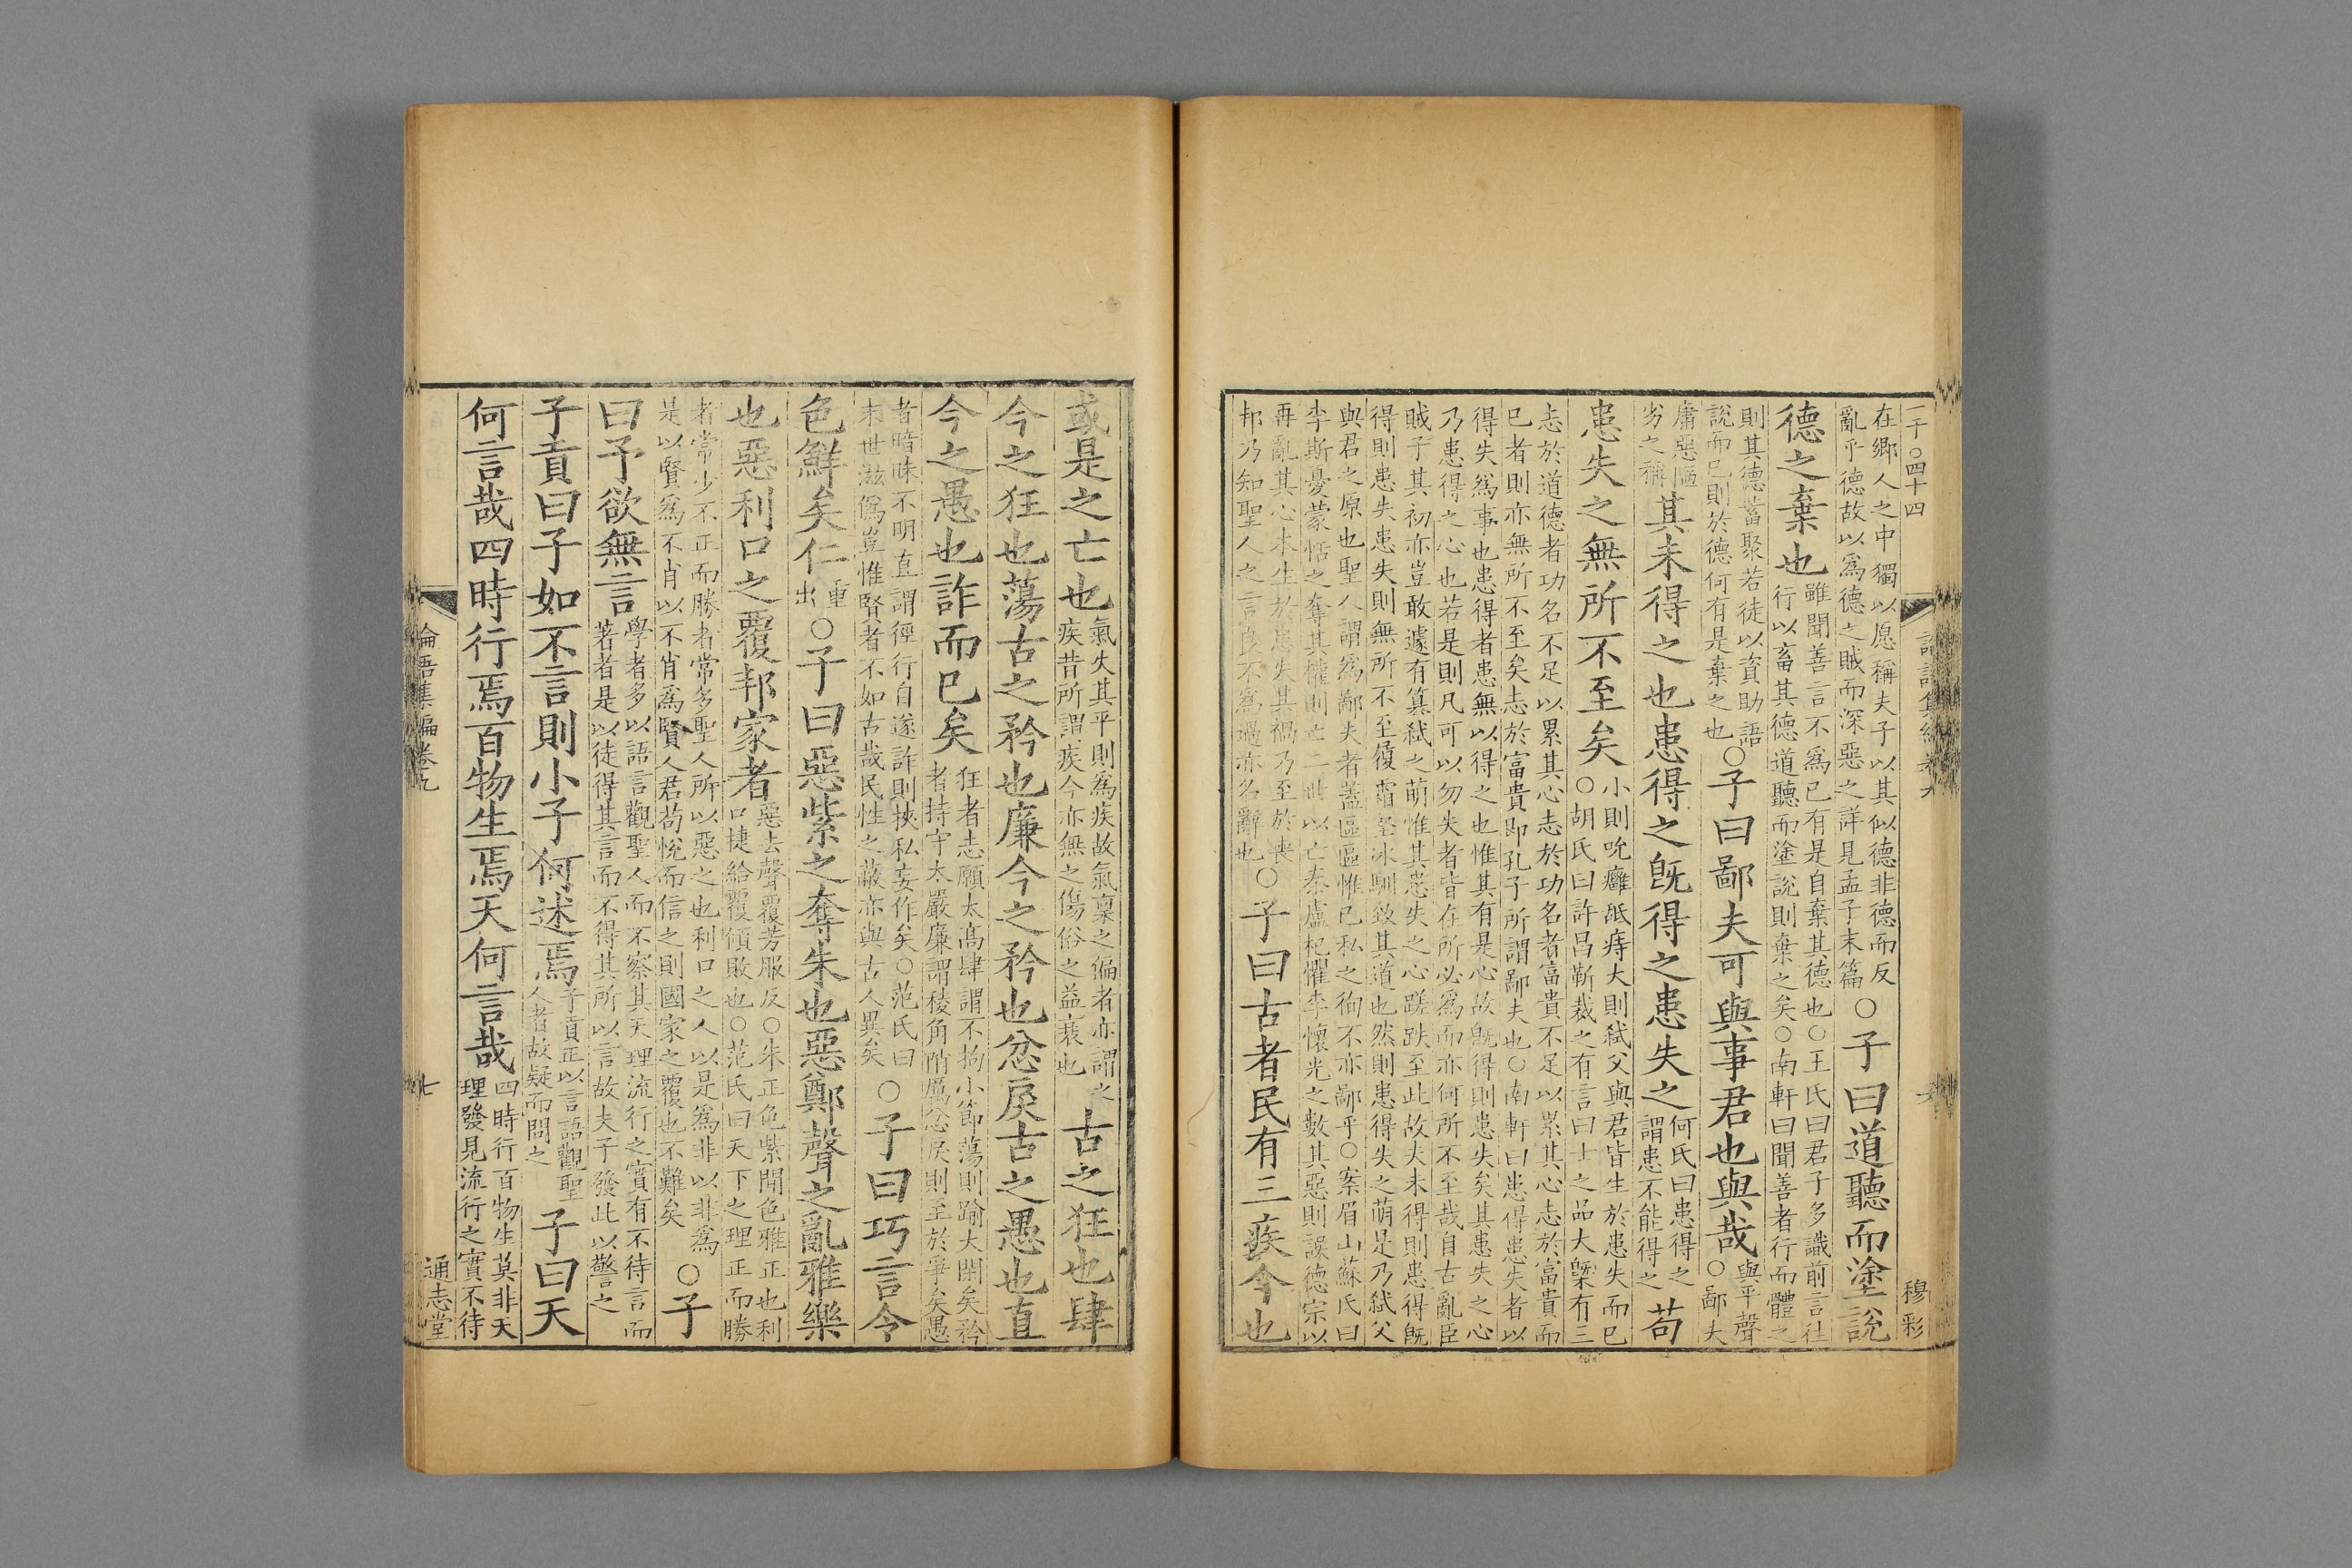 二千〇四十四
穆彩
在鄉人之中獨以愿稱夫子以其似德非德而反
亂乎德故以爲德之賊而深惡之詳見孟子末篇〇子曰道聽而塗說
德之棄也雖聞善言不爲已有是自棄其德也〇王氏曰君子多識前言往
行以畜其德道聽而塗說則棄之矣〇南軒曰聞善者行而體之
則其德蓄聚若徒以資助語
說而已則於德何有是棄之也〇子曰鄙夫可與事君也與哉與平聲
〇鄙夫
庸惡陋
劣之稱其未得之也患得之旣得之患失之何氏曰患得之
謂患不能得之苟
患失之無所不至矣小則吮癰舐痔大則弑父與君皆生於患失而已
〇胡氏曰許昌靳裁之有言曰士之品大槩有三
志於道德者功名不足以累其心志於功名者富貴不足以累其心志於富貴而
已者則亦無所不至矣志於富貴卽孔子所謂鄙夫也〇南軒曰患得患失者以
得失爲事也患得者患無以得之也惟其有是心故旣得則患失矣其患失之心
乃患得之心也若是則凡可以勿失者皆在所必爲而亦何所不至哉自古亂臣
賊子其初亦豈敢遽有篡弑之萌惟其患失之心蹉跌至此故夫未得則患得旣
得則患失患失則無所不至履霜堅冰馴致其道也然則患得失之萌是乃弑父
與君之原也聖人謂爲鄙夫者蓋區區惟已私之徇不亦鄙乎〇案眉山蘇氏曰
李斯憂蒙恬之奪其權則亡二世以亡秦盧杞懼李懷光之數其惡則誤德宗以
再亂其心本生於患失其禍乃至於喪
邦乃知聖人之言良不爲過亦名辭也〇子曰古者民有三疾今也
或是之亡也氣失其平則爲疾故氣稟之偏者亦謂之
疾昔所謂疾今亦無之傷俗之益衰也古之狂也肆
今之狂也蕩古之矜也廉今之矜也忿戾古之愚也直
今之愚也詐而已矣狂者志願太高肆謂不拘小節蕩則踰大閑矣矜
者持守太嚴廉謂稜角陗厲忿戾則至於爭矣愚
者暗昧不明直謂徑行自遂詐則挾私妄作矣〇范氏曰
末世滋僞豈惟賢者不如古哉民性之蔽亦與古人異矣〇子曰巧言令
色鮮矣仁重
出〇子曰惡紫之奪朱也惡鄭聲之亂雅樂
也惡利口之覆邦家者惡去聲覆芳服反〇朱正色紫閒色雅正也利
口捷給覆傾敗也〇范氏曰天下之理正而勝
者常少不正而勝者常多聖人所以惡之也利口之人以是爲非以非爲
是以賢爲不肖以不肖爲賢人君苟悅而信之則國家之覆也不難矣〇子
曰予欲無言學者多以語言觀聖人而不察其天理流行之實有不待言而
著者是以徒得其言而不得其所以言故夫子發此以警之
子貢曰子如不言則小子何述焉子貢正以言語觀聖
人者故疑而問之子曰天
何言哉四時行焉百物生焉天何言哉四時行百物生莫非天
理發見流行之實不待
論語集編卷九
七
通志堂